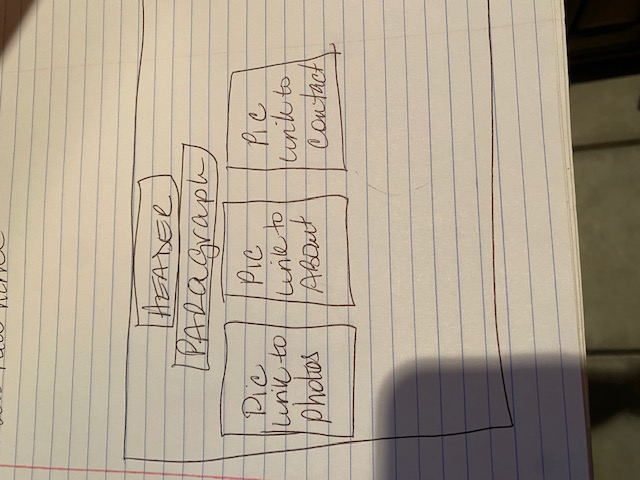 HEADER
PARAgraph
Pic
link to
photos
Pic
link to
ABOUT
Pic
link to
contact